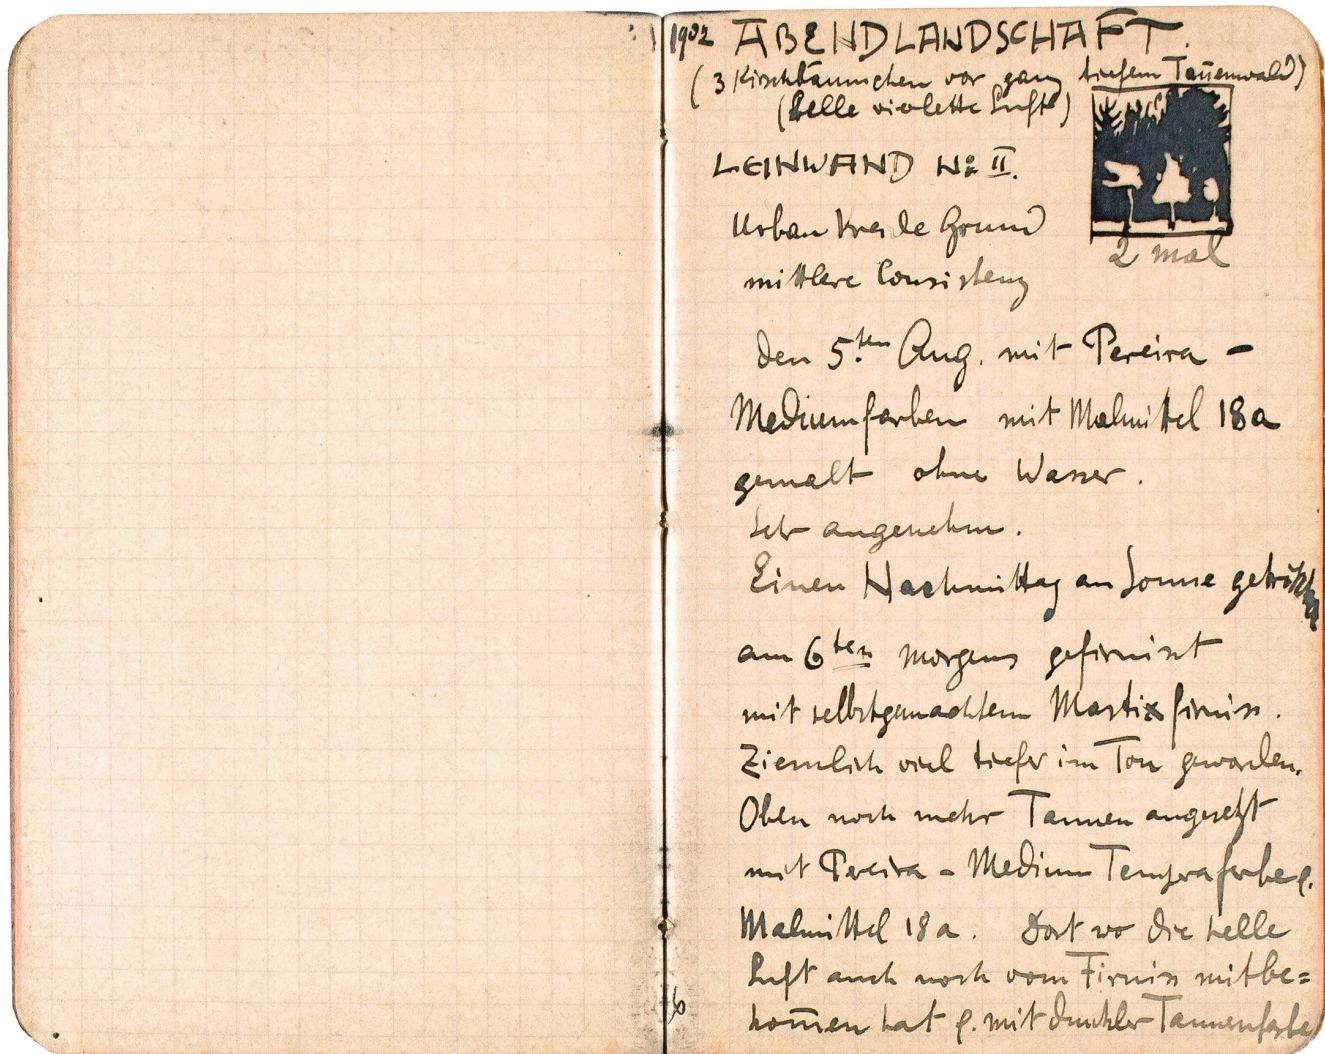 1902 ABENDLANDSCHAFT.
(3 Kirschbäumchen vor ganz tiefem Tan̄enwald)
(helle violette Luft)
LEINWAND No II.
Urban Kreide Grund
2 mal
mittlere Consistenz
den 5ten Aug. mit Pereira -
Mediumfarben mit Malmittel 18a
gemalt ohne Wasser.
Sehr angenehm.
Einen Nachmittag an Sonne getrocknet
am 6ten morgens gefirnisst
mit selbstgemachtem Mastixfirniss.
Ziemlich viel tiefer im Ton geworden.
Oben noch mehr Tannen angesetzt
mit Pereira - Medium Temprafarbe &.
Malmittel 18a. Dort wo die helle
Luft auch noch vom Firniss mitbe=
kom̄en hat &. mit dunkler Tannenfarbe
6